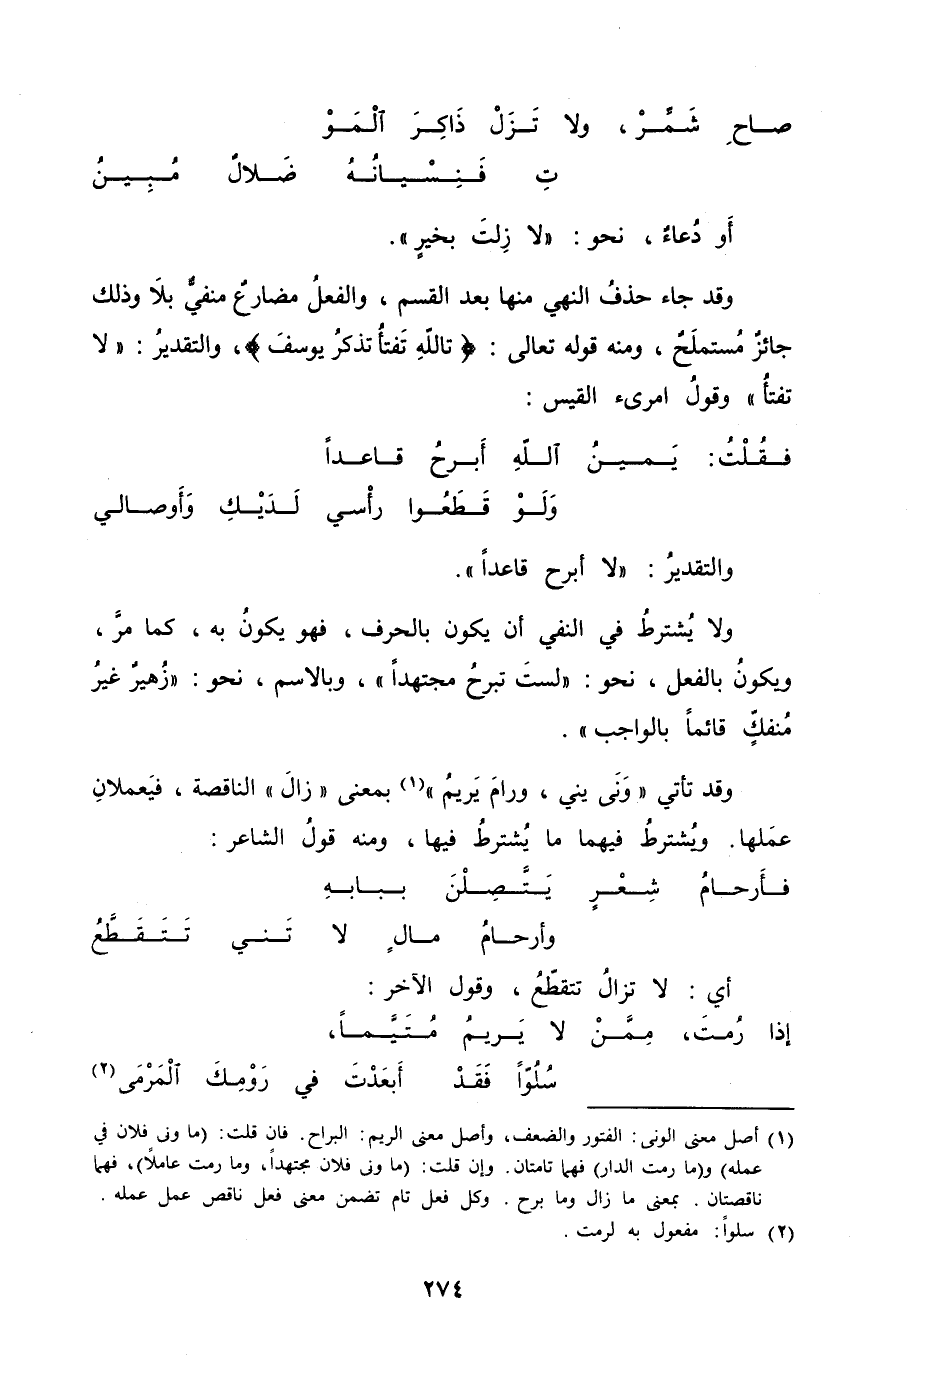 صاحِ شَمِّرْ ، ولا تَزَلْ ذَاكِرَ ٱلْمَوْ
تِ فَنِسْيانُهُ ضَلالٌ مُبِينُ
أَو دُعاءٌ ، نحو : «لا زِلتَ بخيرٍ».
وقد جاء حذفُ النهي منها بعد القسم ، والفعلُ مضارعٌ منفيٌّ بلَا وذلك
جائزٌ مُستملَحٌ ، ومنه قوله تعالى : ﴿ تاللّهِ تَفتأُ تذكرُ يوسفَ ﴾، والتقديرُ : « لا
تفتأُ » وقولُ امرىء القيس :
فَقُلْتُ: يَمينُ ٱللّهِ أَبرحُ قاعداً
وَلَوْ قَطَعُوا رأْسي لَدَيْكِ وَأَوصالي
والتقديرُ : «لا أبرح قاعداً ».
ولا يُشترطُ في النفي أن يكون بالحرف ، فهو يكونُ به ، كما مرَّ ،
ويكونُ بالفعل ، نحو : «لستَ تبرحُ مجتهداً » ، وبالاسم ، نحو : «زُهيرٌ غيرُ
مُنفكٍّ قائماً بالواجب» .
وقد تأتي « وَنَى يني ، ورامَ يَريمُ »(١) بمعنى « زالَ » الناقصة ، فيَعملانِ
عمَلها. ويُشترطُ فيهما ما يُشترطُ فيها ، ومنه قولُ الشاعر :
فأَرحامُ شِعْرٍ يَتَّصِلْنَ ببابهِ
وأرحامُ مالٍ لا تَني تَتَقَطَّعُ
أي : لا تزالُ تتقطّعُ ، وقول الآخر :
إذا رُمتَ، مِمَّنْ لا يَريمُ مُتَيَّماً،
سُلُوّاً فَقَدْ أَبعَدْتَ في رَوْمِكَ ٱلْمَرْمَى(٢)
(١) أصل معنى الونى : الفتور والضعف، وأصل معنى الريم: البراح. فان قلت: (ما ونى فلان في
عمله) و(ما رمت الدار) فهما تامتان. وإن قلت: (ما ونى فلان مجتهداً، وما رمت عاملاً)، فهما
ناقصتان . بمعنى ما زال وما برح . وكل فعل تام تضمن معنى فعل ناقص عمل عمله .
(٢) سلواً: مفعول به لرمت .
٢٧٤